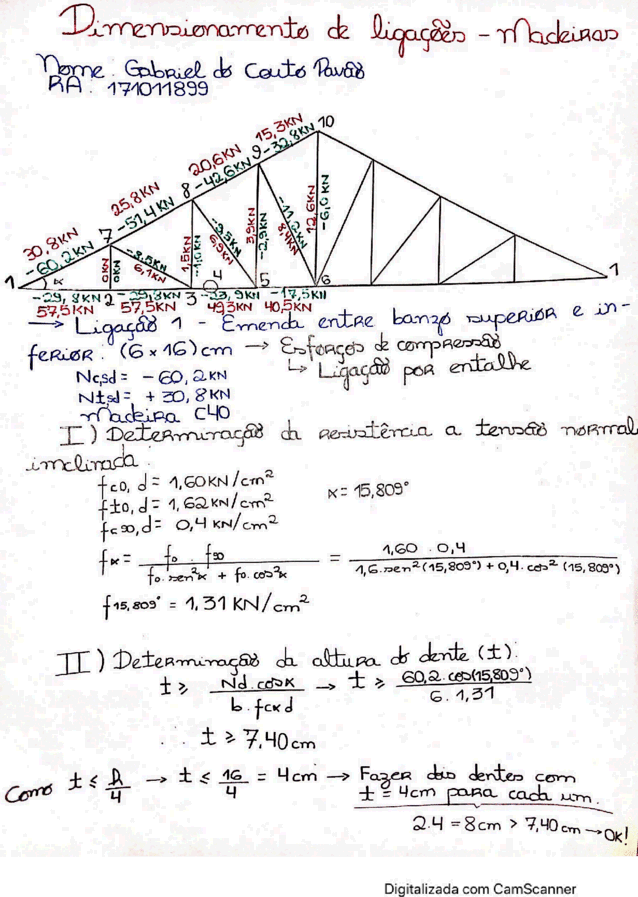 Dimensionamento de ligações - Madeiras
Nome: Gabriel do Couto Pavão
RA: 171011899
15,3KN 10
9 -32,8KN
20,6KN
8 -42,6KN
25,8KN
7 -51,4KN
30,8KN
-60,2KN
1 α
0KN 0KN
-2,5KN
6,1KN
1,5KN -1,0KN
-3,5KN
6,9KN
3,9KN -2,9KN
-11,2KN
8,4KN
12,6KN -6,0KN
4 5 6 1
-29,8KN 2 -29,8KN 3 -23,9KN -17,5KN
57,5KN 57,5KN 49,5KN 40,5KN
→ Ligação 1 - Emenda entre banzo superior e in-
ferior: (6 x 16) cm → Esforços de compressão
↳ Ligação por entalhe
Nc,sd = -60,2KN
Nt,sd = +30,8KN
Madeira C40
I) Determinação da resistência a tensão normal
inclinada.
fc0,d = 1,60KN/cm²
ft0,d = 1,62KN/cm² α = 15,809°
fc90,d = 0,4KN/cm²
fα = f0 . f90 / f0.sen²α + f0.cos²α = 1,60 . 0,4 / 1,6.sen²(15,809°) + 0,4.cos²(15,809°)
f15,809° = 1,31KN/cm²
II) Determinação da altura do dente (t):
t ≥ Nd.cosα / b.fcαd → t ≥ 60,2.cos(15,809°) / 6.1,31
∴ t ≥ 7,40cm
Como t ≤ h/4 → t ≤ 16/4 = 4cm → Fazer dois dentes com
t = 4cm para cada um.
2.4 = 8cm > 7,40cm → OK!
Digitalizada com CamScanner